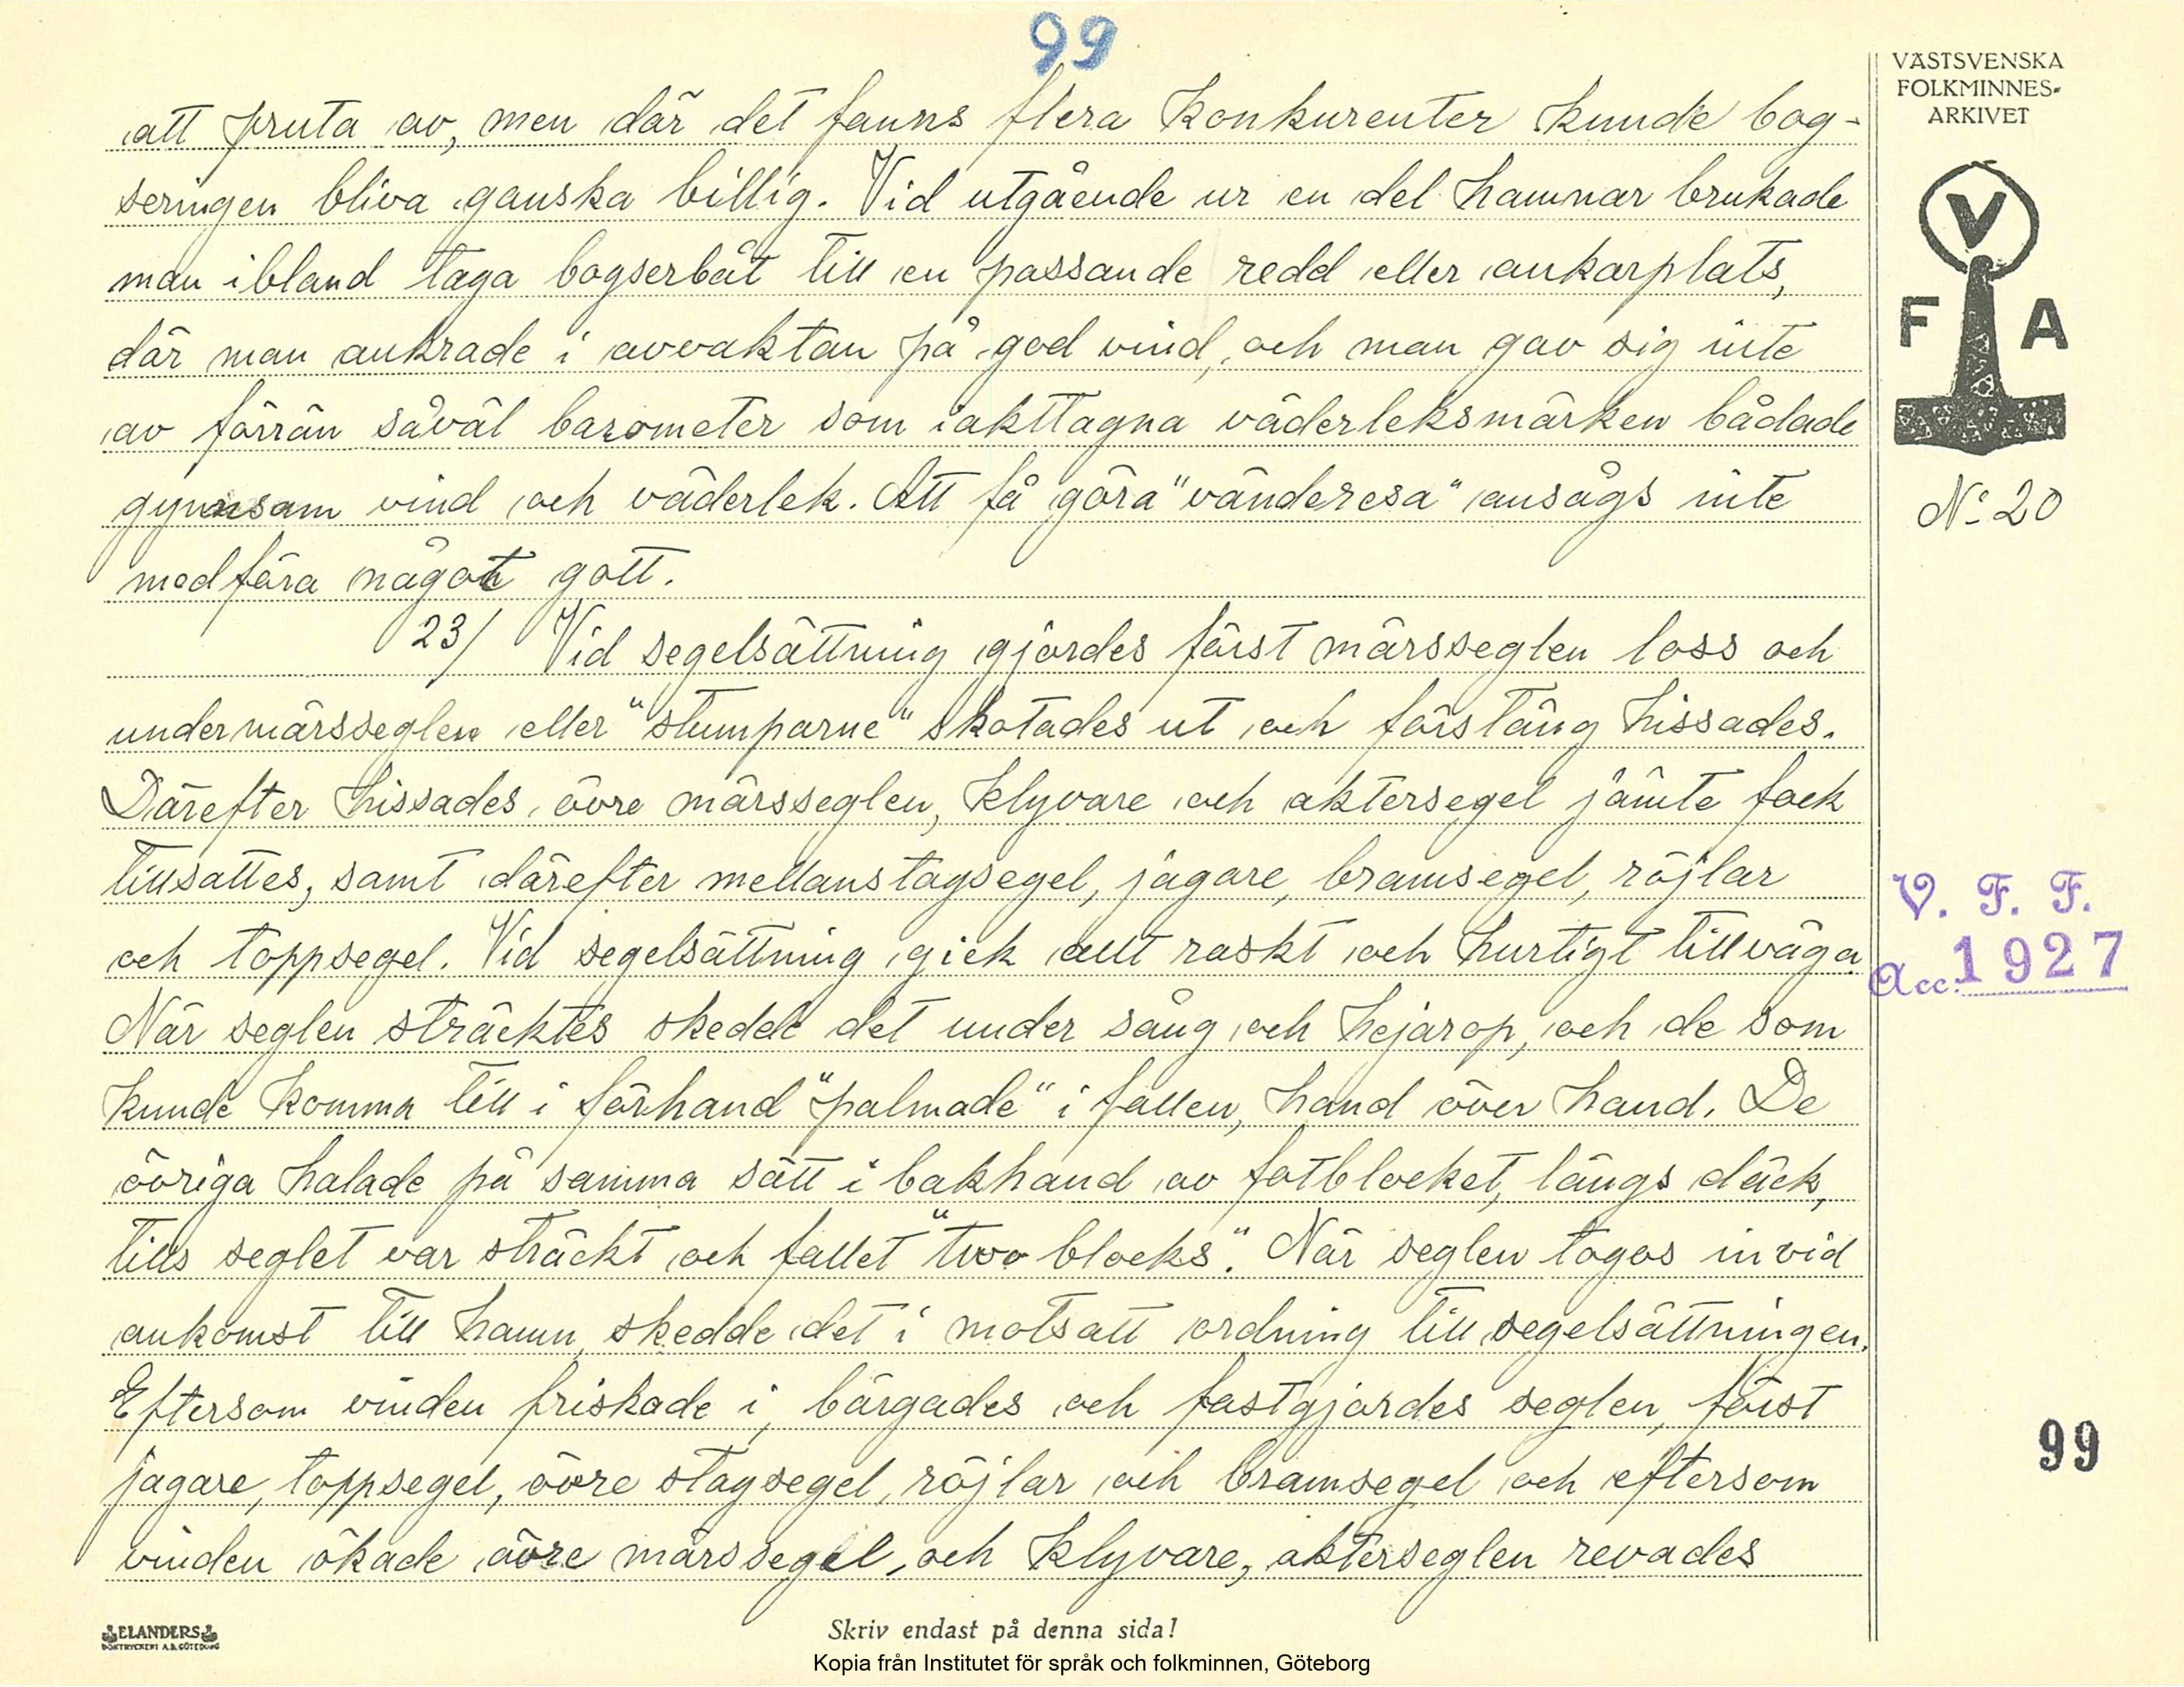 99
VÄSTSVENSKA
FOLKMINNES-
ARKIVET
V
F A
No 20
att pruta av, men där det fanns flera konkurenter kunde bog-
seringen bliva ganska billig. Vid utgående ur en del hamnar brukade
man ibland taga bogserbåt till en passande redd eller ankarplats,
där man ankrade i avvaktan på god vind, och man gav sig inte
av förrän såväl barometer som iakttagna väderleksmärken bådade
gynnsam vind och väderlek. Att få göra "vänderesa" ansågs inte
medföra något gott.
23/ Vid segelsättning gjordes först märsseglen loss och
undermärsseglen eller "stumparne" skotades ut och förstäng hissades.
Därefter hissades övre märsseglen, klyvare och aktersegel jämte fock
tillsattes, samt därefter mellanstagsegel, jagare, bramsegel, röjlar
och toppsegel. Vid segelsättning gick allt raskt och hurtigt tillväga
När seglen sträcktes skedde det under sång och hejarop, och de som
kunde komma till i förhand "palmade" i fallen, hand över hand. De
övriga halade på samma sätt i bakhand av fotblocket, längs däck,
tills seglet var sträckt och fallet "two blocks". När seglen togos in vid
ankomst till hamn, skedde det i motsatt ordning till segelsättningen.
Eftersom vinden friskade i, bärgades och fastgjordes seglen, först
jagare, toppsegel, övre stagsegel, röjlar och bramsegel och eftersom
vinden ökade övre märssegel, och klyvare, akterseglen revades
V. F. F.
Acc. 1927
99
ELANDERS
BOKTRYCKERI A.B. GÖTEBORG
Skriv endast på denna sida!
Kopia från Institutet för språk och folkminnen, Göteborg